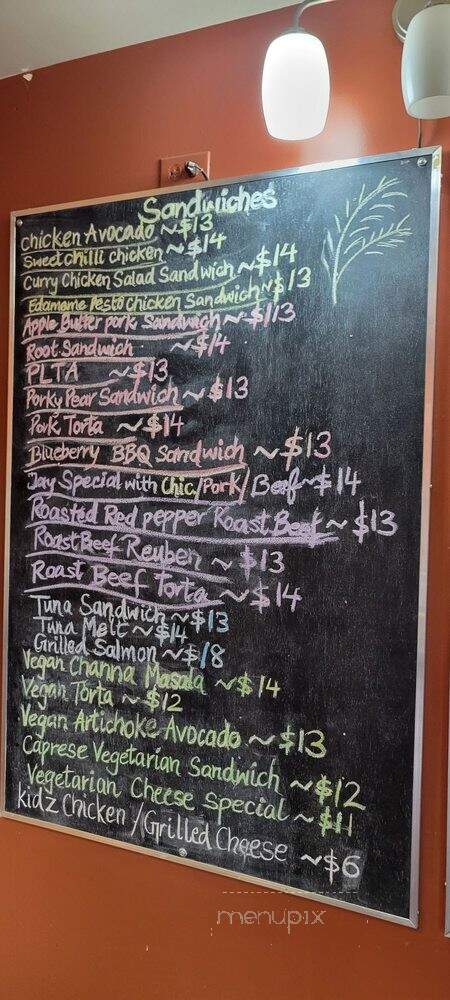 Sandwiches
Chicken Avocado ~$13
Sweet chilli chicken ~$14
Curry Chicken Salad Sandwich ~$14
Edamame Pesto chicken Sandwich ~$13
Apple Butter pork Sandwich ~$113
Root Sandwich ~$14
PLTA ~$13
Porky Pear Sandwich ~$13
Pork Torta ~$14
Blueberry BBQ Sandwich ~$13
Jay Special with Chic/Pork/Beef~$14
Roasted Red pepper Roast Beef ~$13
Roast Beef Reuben ~$13
Roast Beef Torta ~$14
Tuna Sandwich ~$13
Tuna Melt ~$14
Grilled Salmon ~$18
Vegan Channa Masala ~$14
Vegan Torta ~$12
Vegan Artichoke Avocado ~$13
Caprese Vegetarian Sandwich ~$12
Vegetarian Cheese Special ~$11
kidz Chicken/Grilled Cheese ~$6
menupix